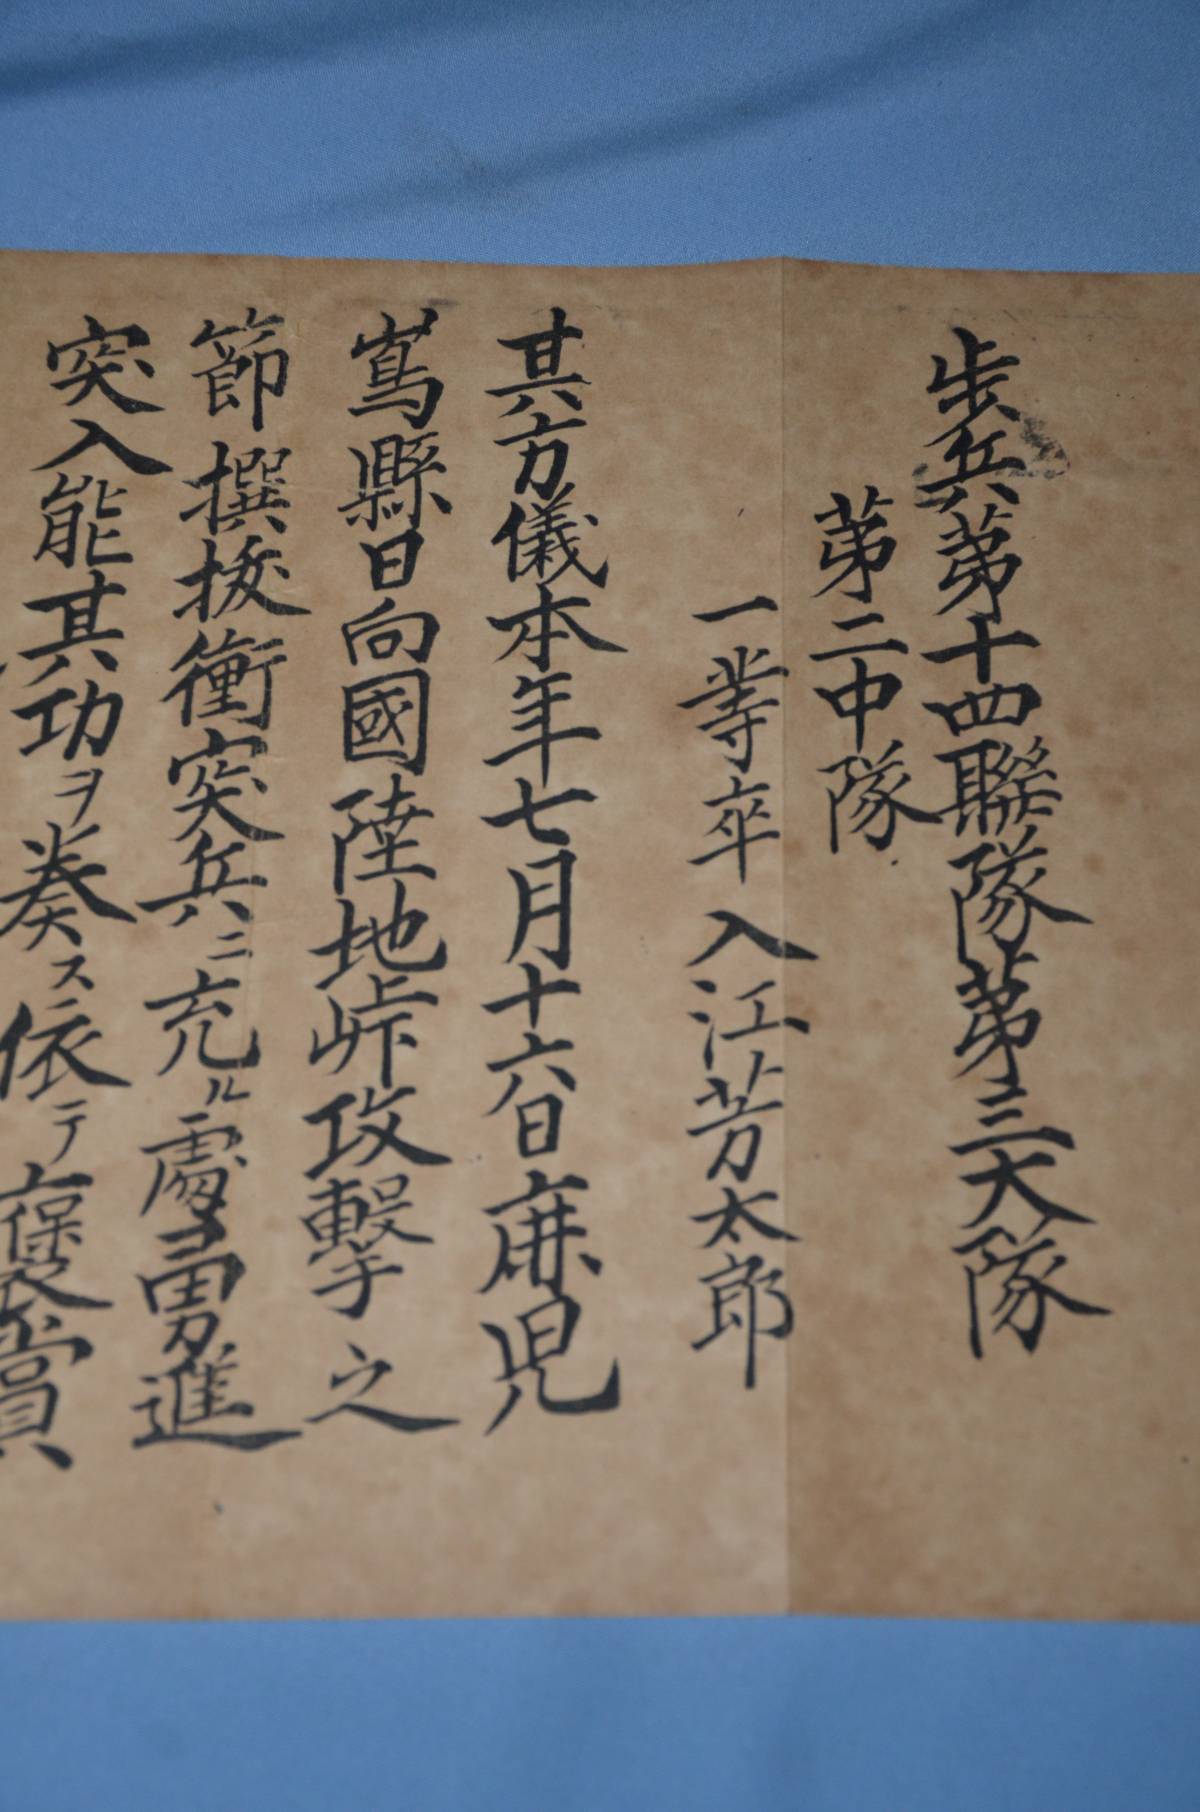 歩兵第十四聯隊第三大隊
第二中隊
一等卒 入江芳太郎
其方儀本年七月十六日麑児
嶌縣日向國陸地峠攻撃之
節撰抜衝突兵ニ充ル處勇進
突入能其功ヲ奏ス依テ褒賞